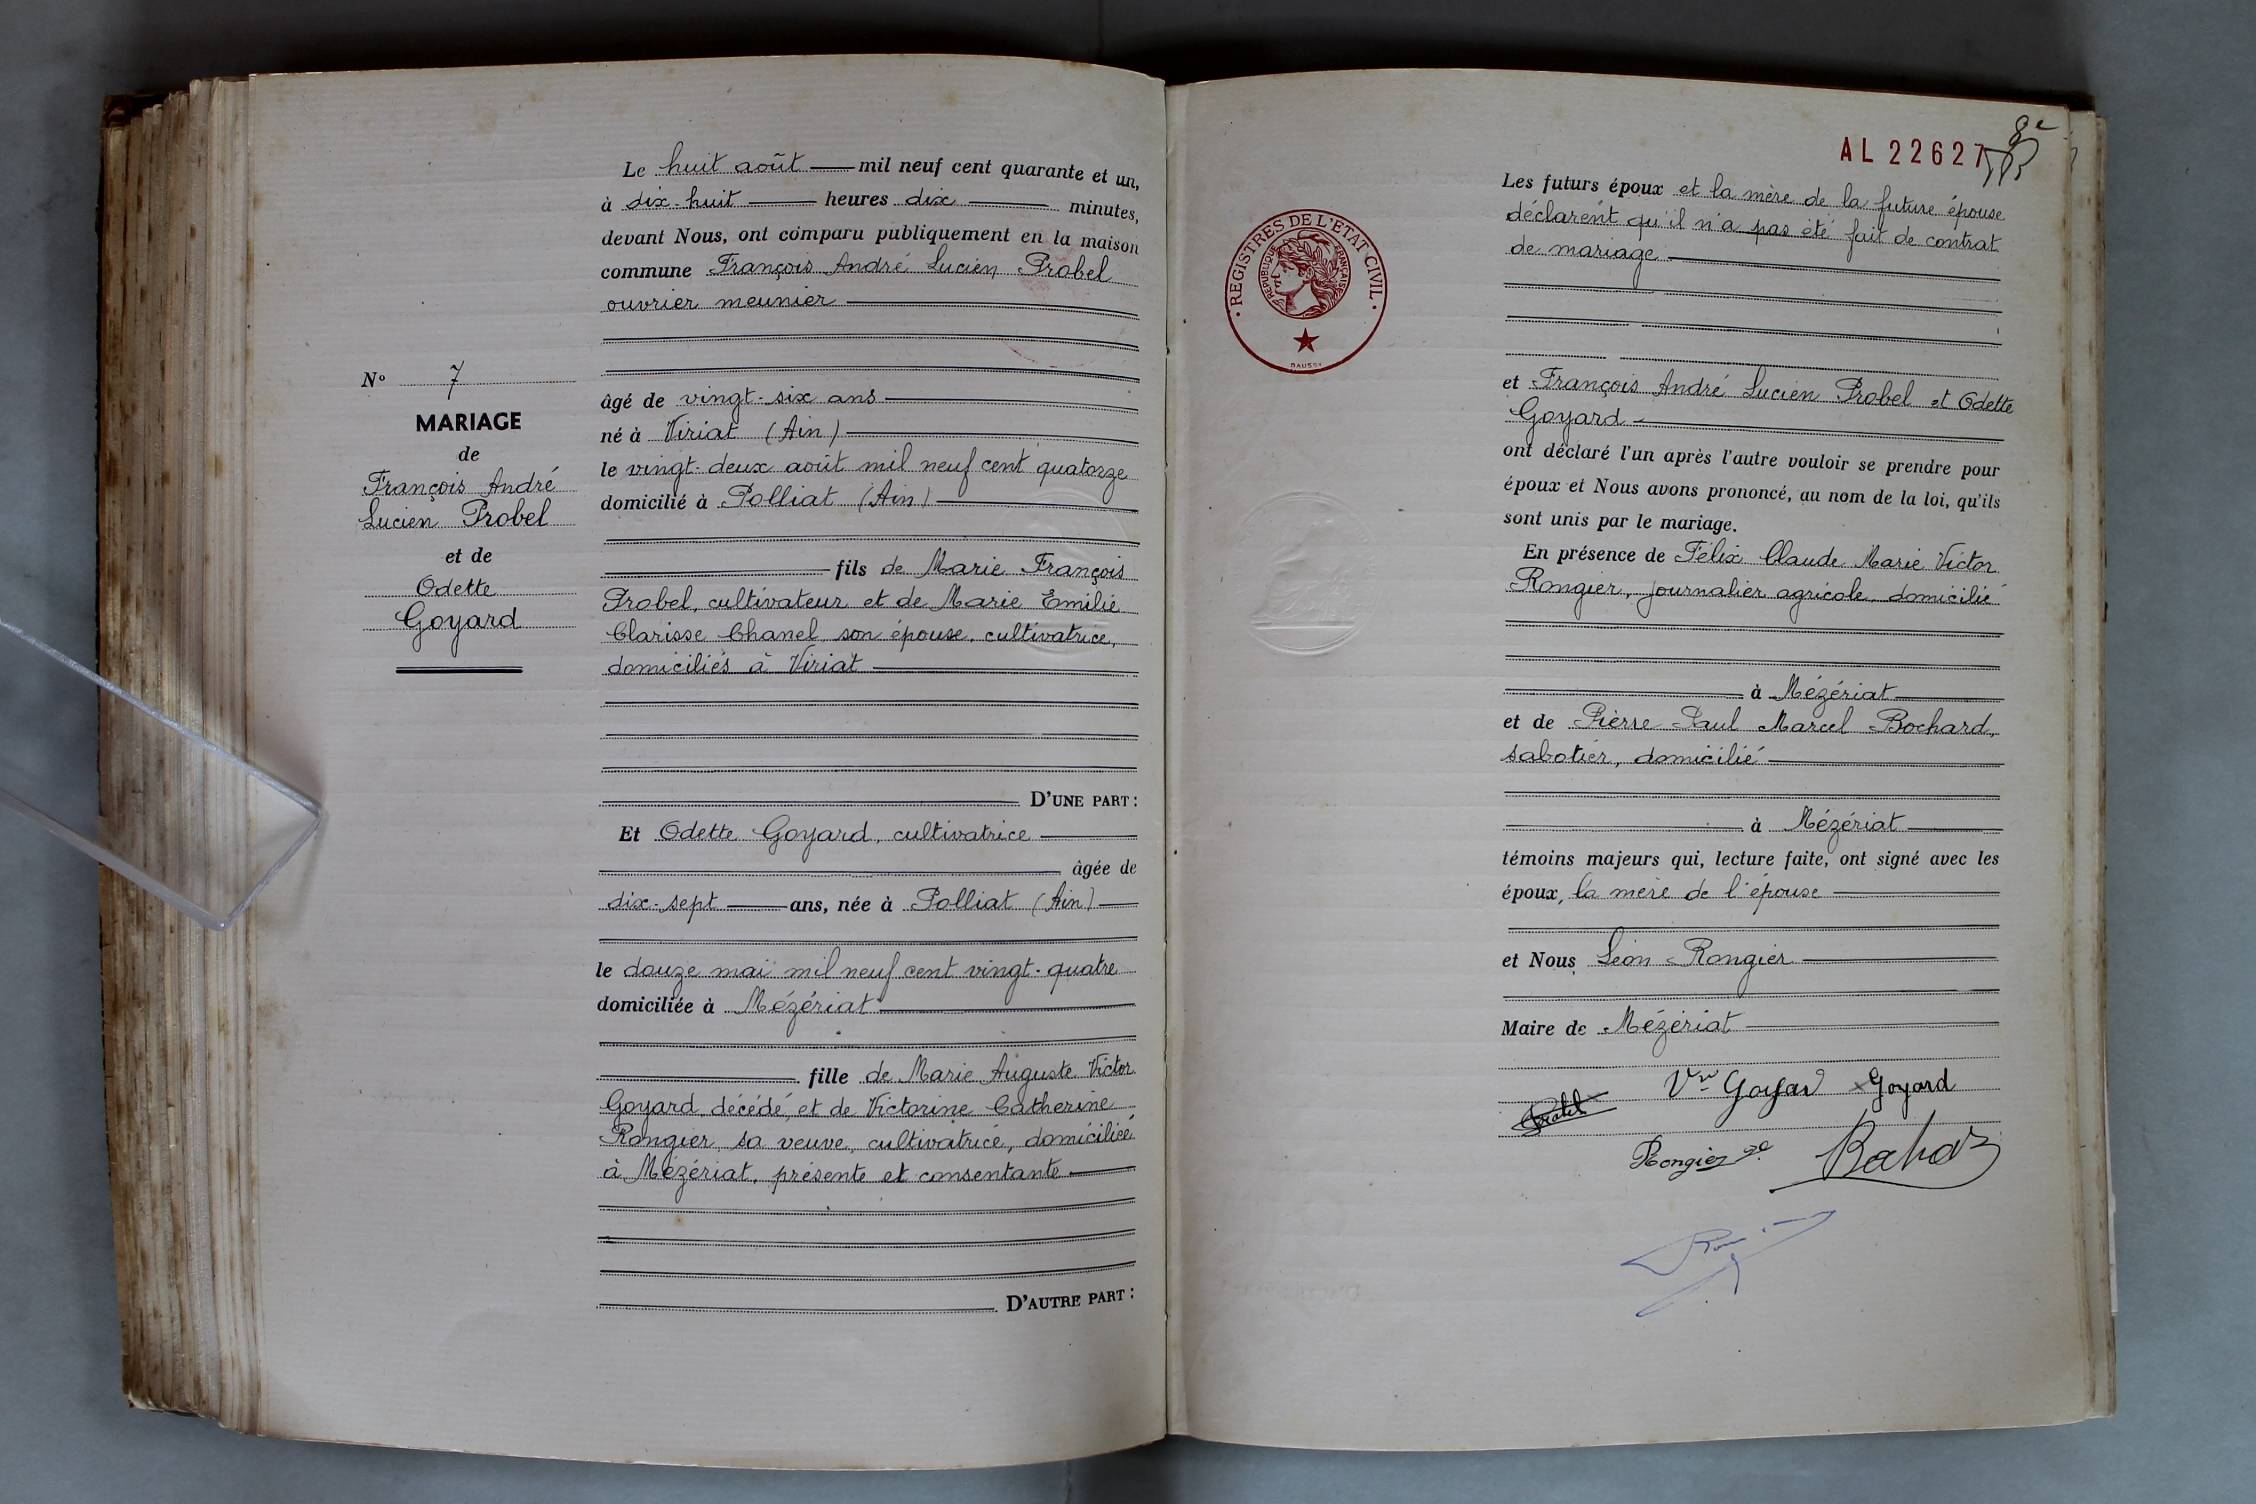 Le huit août mil neuf cent quarante et un,
à dix-huit heures dix minutes,
devant Nous, ont comparu publiquement en la maison
commune François André Lucien Probel
ouvrier meunier
âgé de vingt-six ans
né à Viriat (Ain)
le vingt-deux août mil neuf cent quatorze
domicilié à Polliat (Ain)
fils de Marie François
Probel, cultivateur et de Marie Emilie
Clarisse Chanel, son épouse, cultivatrice,
domiciliés à Viriat
D'UNE PART :
Et Odette Goyard, cultivatrice
âgée de
dix-sept ans, née à Polliat (Ain)
le douze mai mil neuf cent vingt-quatre
domiciliée à Mézériat
fille de Marie Auguste Victor
Goyard, décédé, et de Victorine Catherine
Rongier, sa veuve, cultivatrice, domiciliée
à Mézériat, présente et consentante
D'AUTRE PART :
N° 7
MARIAGE
de
François André
Lucien Probel
et de
Odette
Goyard
AL 22627
8e
REGISTRES DE L'ETAT CIVIL
REPUBLIQUE FRANÇAISE
DAUSSY
Les futurs époux et la mère de la future épouse
déclarent qu'il n'a pas été fait de contrat
de mariage
et François André Lucien Probel et Odette
Goyard
ont déclaré l'un après l'autre vouloir se prendre pour
époux et Nous avons prononcé, au nom de la loi, qu'ils
sont unis par le mariage.
En présence de Félix Claude Marie Victor
Rongier, journalier agricole, domicilié
à Mézériat
et de Pierre Paul Marcel Bochard,
sabotier, domicilié
à Mézériat
témoins majeurs qui, lecture faite, ont signé avec les
époux, la mère de l'épouse
et Nous Léon Rongier
Maire de Mézériat
Vve Goyard Goyard
Probel
Rongier